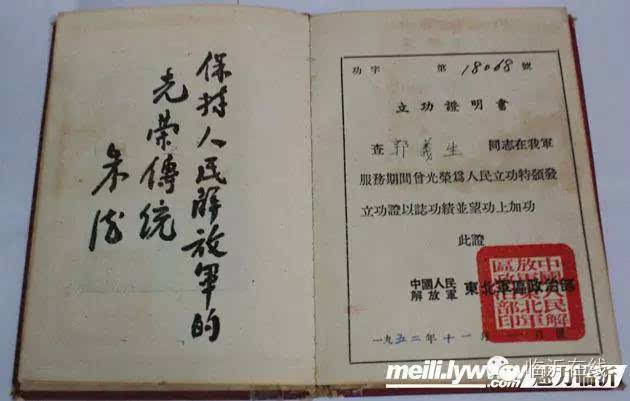 保持人民解放軍的
光荣傳統
朱德
功字 第18068號
立功證明書
查 郭義生 同志在我軍
服務期間曾光榮爲人民立功特頒發
立功證以誌功績並望功上加功
此證
中國人民
解放軍 東北軍區政治部
中國人民解
放軍東北軍
區政治部印
一九五二年十一月
临沂在线
meili.lyw
魅力临沂